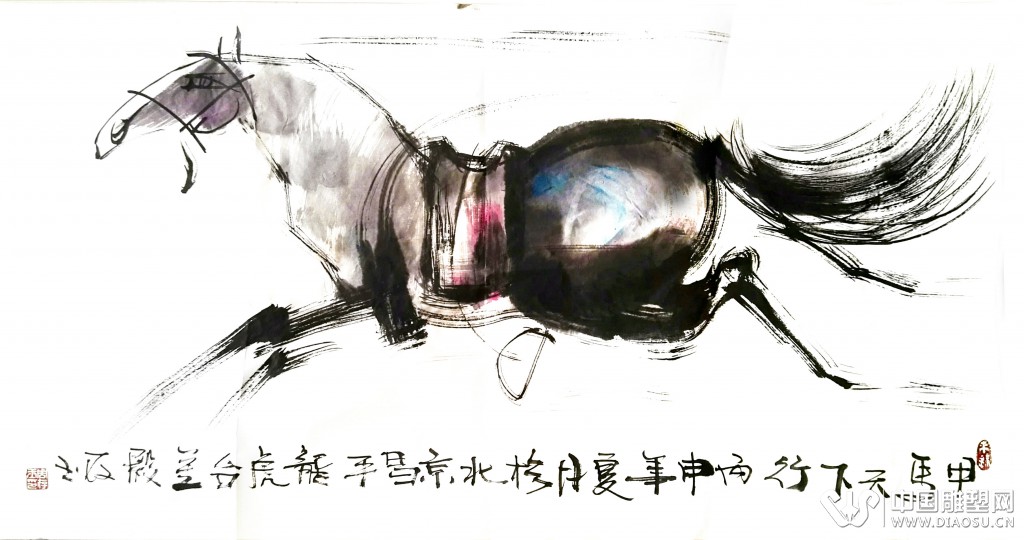 甲馬天下行丙申年夏月於北京昌平龍虎台殿
中国雕塑网
WWW.DIAOSU.CN